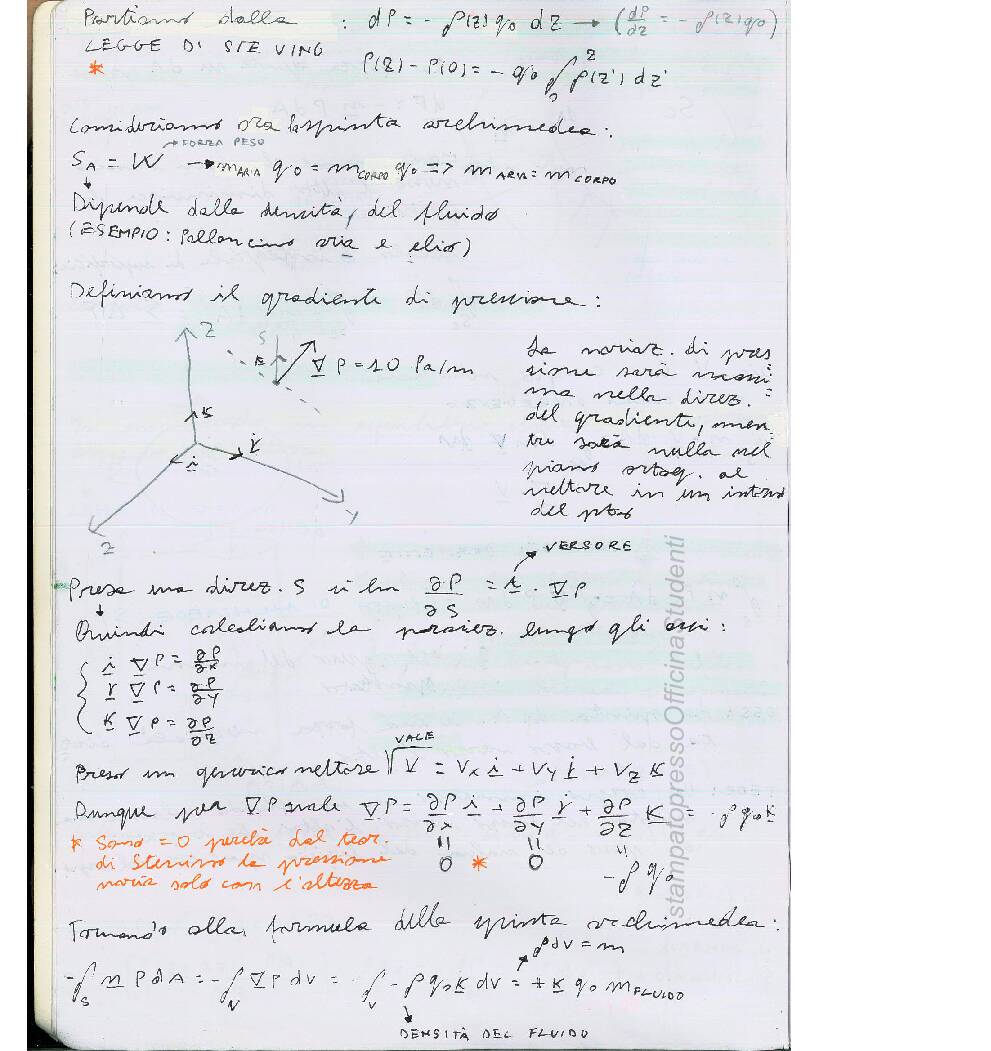 Partiamo dalla : dP = - ρ(z) g₀ dz → (dP/dz = - ρ(z) g₀)
LEGGE DI STEVINO
* P(Z) - P(0) = - g₀ ∫₀^Z ρ(z') dz'
Consideriamo ora la spinta archimedea:
→ FORZA PESO
S_A = W → m_ARIA g₀ = m_CORPO g₀ => m_ARIA = m_CORPO
↓
Dipende dalla densità del fluido
(ESEMPIO: Palloncino aria e elio)
Definiamo il gradiente di pressione:
Z
S
∇P = 10 Pa/m
k
i
j
Y
Z
La variaz. di pres
sione sarà massi
ma nella direz.
del gradiente, men
tre sarà nulla nel
piano ortog. al
vettore in un intorno
del pto
VERSORE
Presa una direz. S si ha ∂P/∂S = i · ∇P
↓
Quindi calcoliamo la proiez. lungo gli assi:
i ∇P = ∂P/∂x
j ∇P = ∂P/∂y
k ∇P = ∂P/∂z
VALE
Preso un generico vettore V = Vx i + Vy j + Vz k
Dunque per ∇P vale ∇P = ∂P/∂x i + ∂P/∂y j + ∂P/∂z k = - ρ g₀ k
* Sono = 0 perchè dal teor.
di Stevino la pressione
varia solo con l'altezza
= 0 * = 0 = - ρ g₀
Tornando alla formula della spinta archimedea:
ρ dV = m
- ∫_S n P dA = - ∫_V ∇P dV = - ∫_V - ρ g₀ k dV = + k g₀ m_FLUIDO
↓
DENSITÀ DEL FLUIDO
stampatopressoOfficinaStudenti